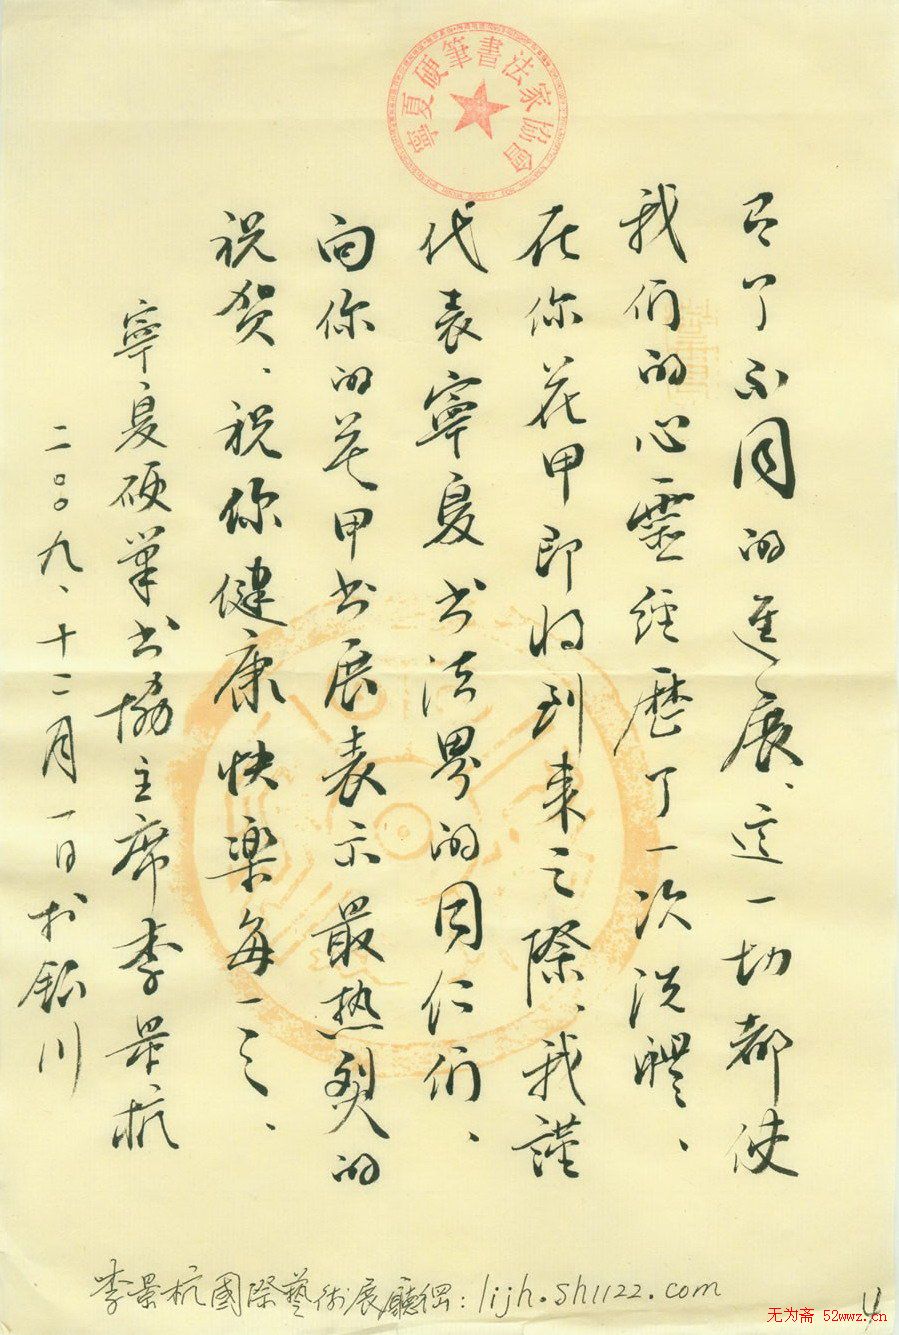 寧夏硬筆書法家協會
有了不同的進展、这一切都使
我们的心靈经歷了一次洗禮、
在你花甲即将到来之際、我謹
代表寧夏书法界的同仁们、
向你的花甲书展表示最热烈的
祝贺、祝你健康快樂每一天、
寧夏硬筆书協主席李景杭
二00九、十二月一日於銀川
李景杭國際藝術展廳網：lijh.sh1122.com
4
无为斋 52wwz.cn